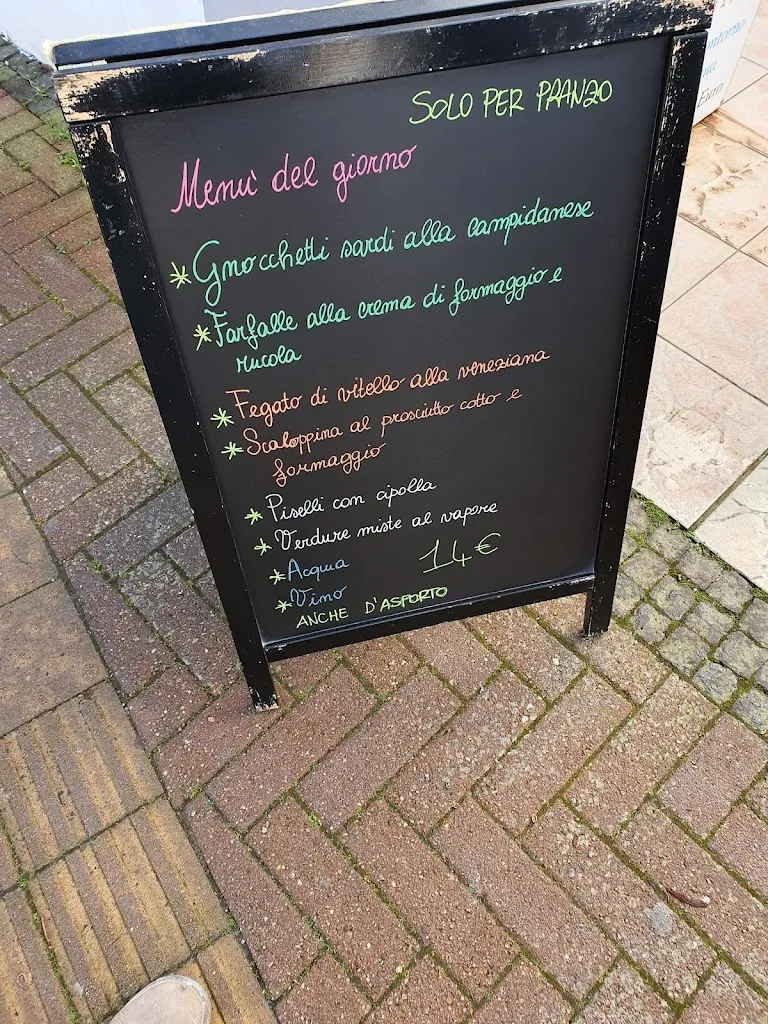 SOLO PER PRANZO
Menù del giorno
* Gnocchetti sardi alla campidanese
* Farfalle alla crema di formaggio e
rucola
* Fegato di vitello alla veneziana
* Scaloppina al prosciutto cotto e
formaggio
* Piselli con cipolla
* Verdure miste al vapore
* Acqua
14€
* Vino
ANCHE D'ASPORTO
Euro